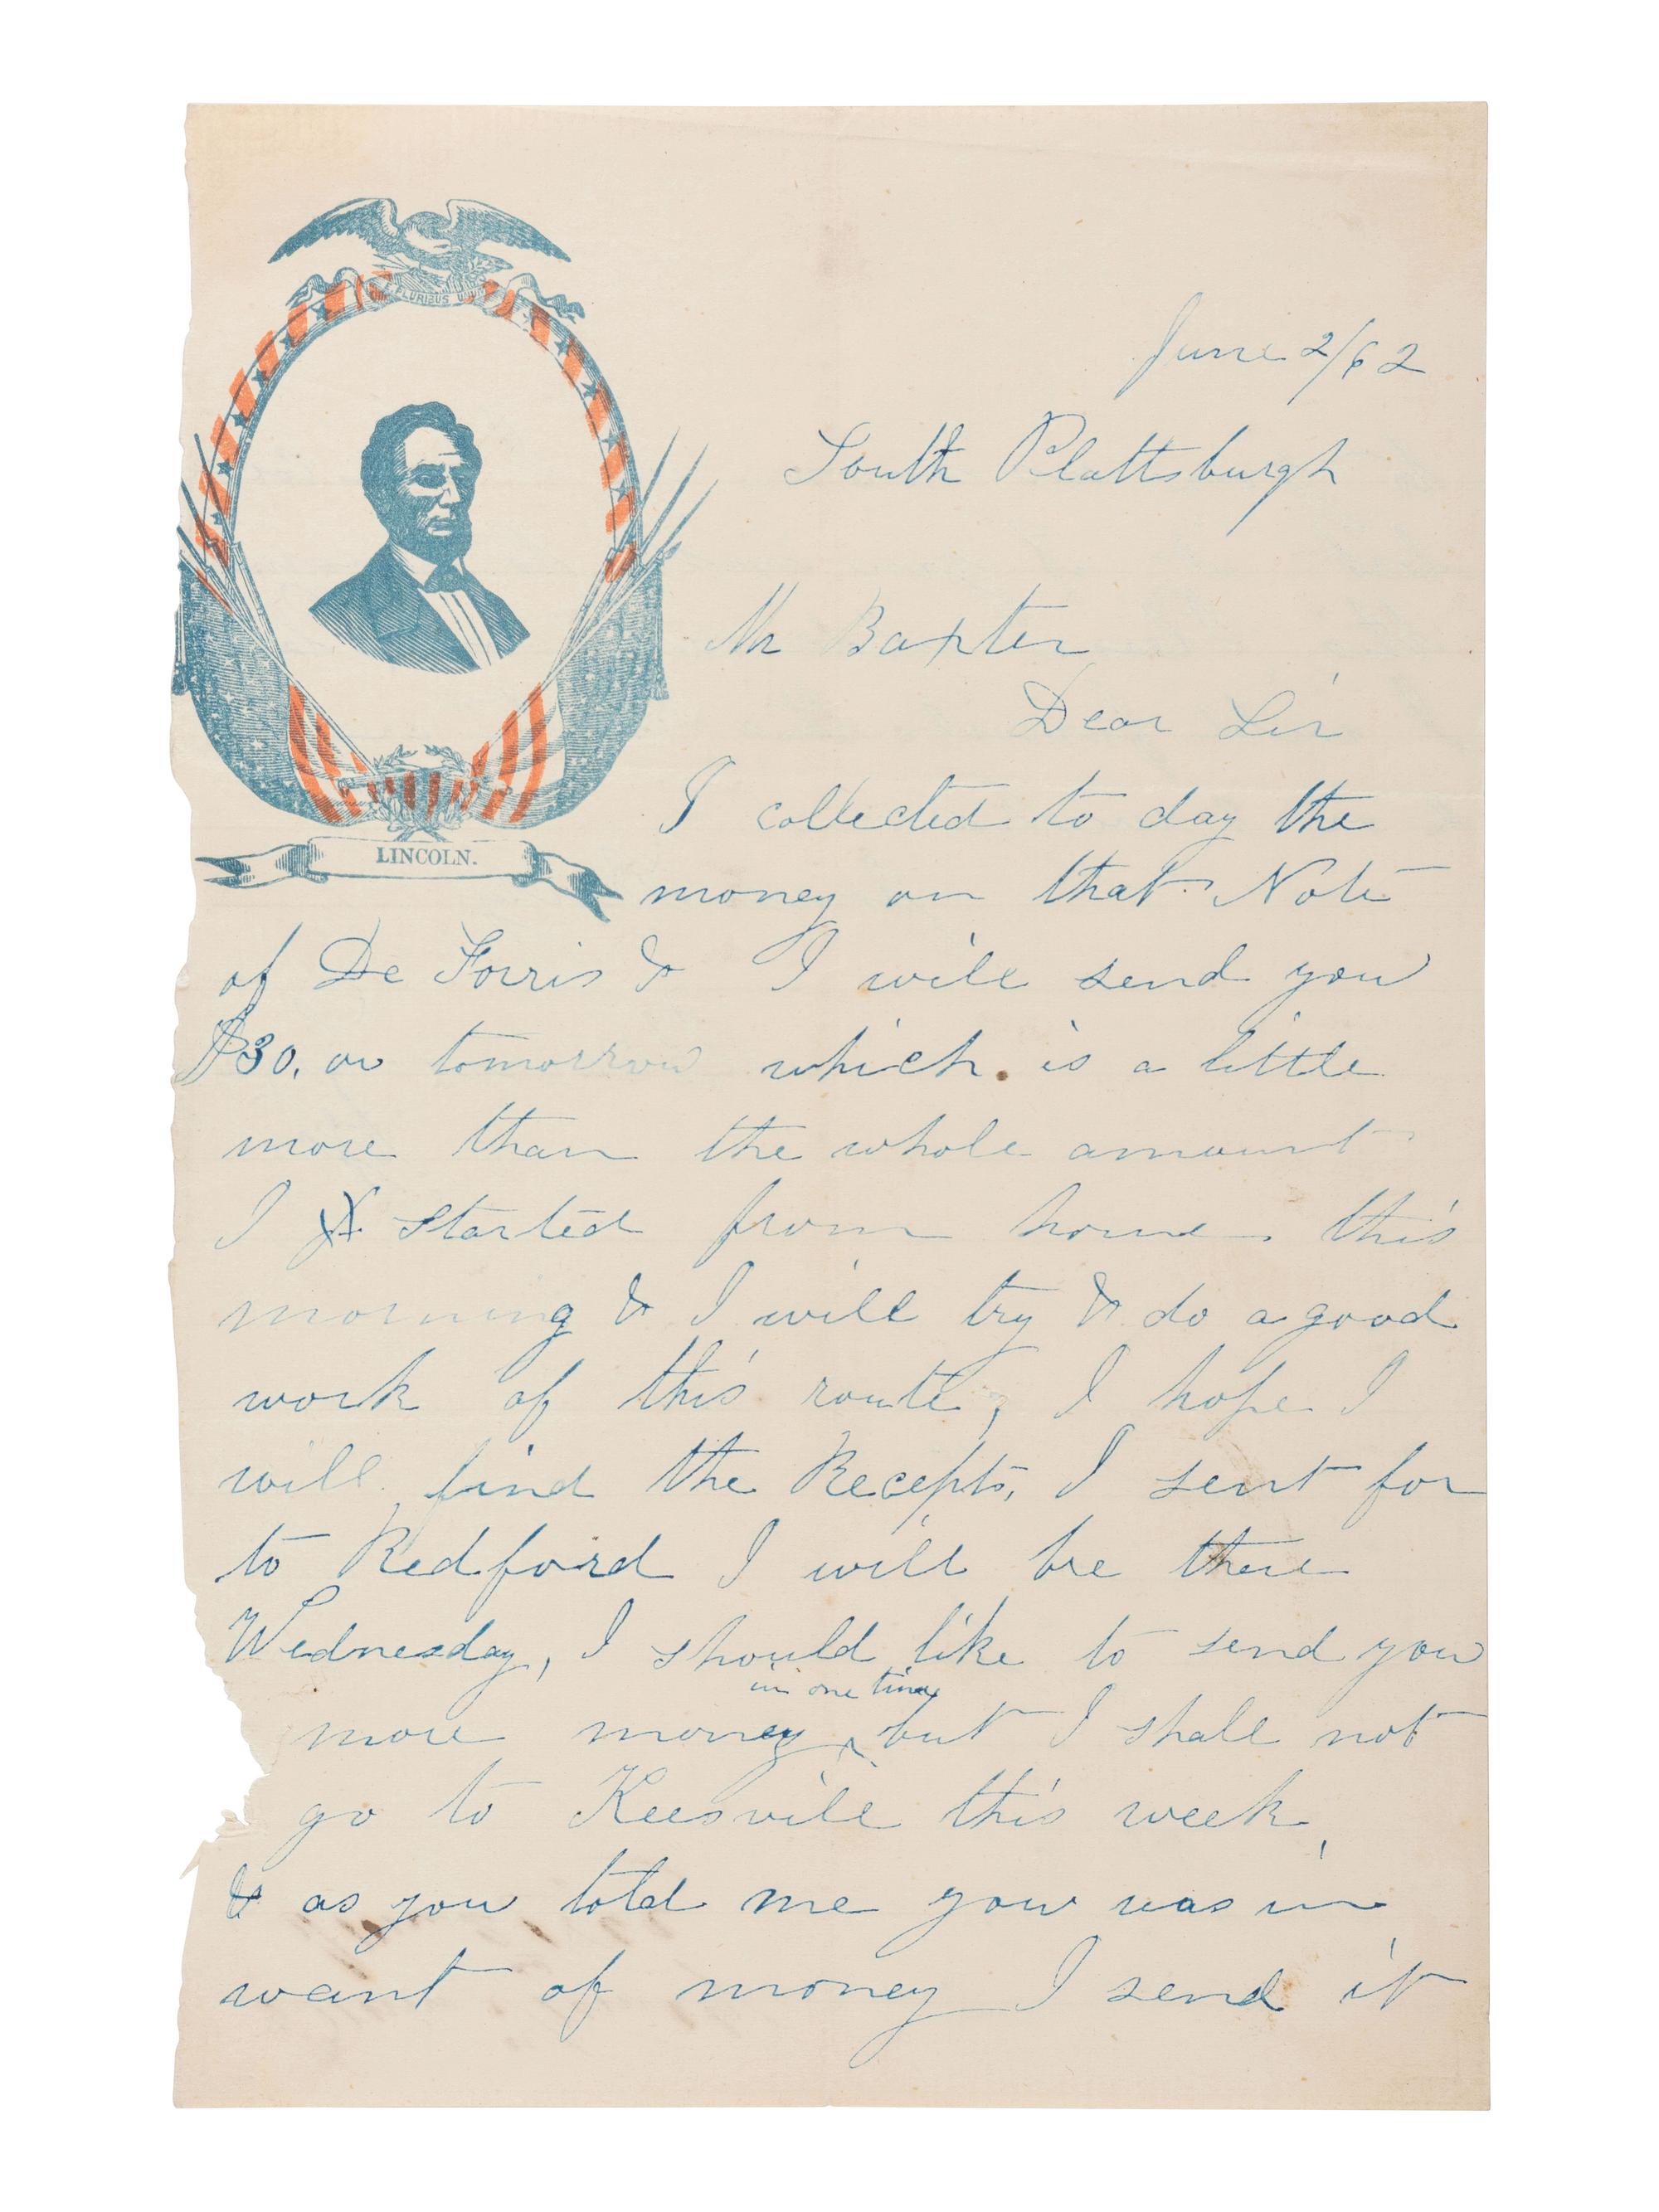 E PLURIBUS UNUM
LINCOLN.
June 2/62
South Plattsburgh
Mr Baxter
Dear Sir
I collected to day the
money on that Note
of De Forris & I will send you
$30. on tomorrow which is a little
more than the whole amount
I started from home this
morning & I will try & do a good
work of this route, I hope I
will find the Recepts, I sent for
to Redford I will be there
Wednesday, I should like to send you
in one time
more money ^ but I shall not
go to Keesvill this week,
& as you told me you was in
want of money I send it